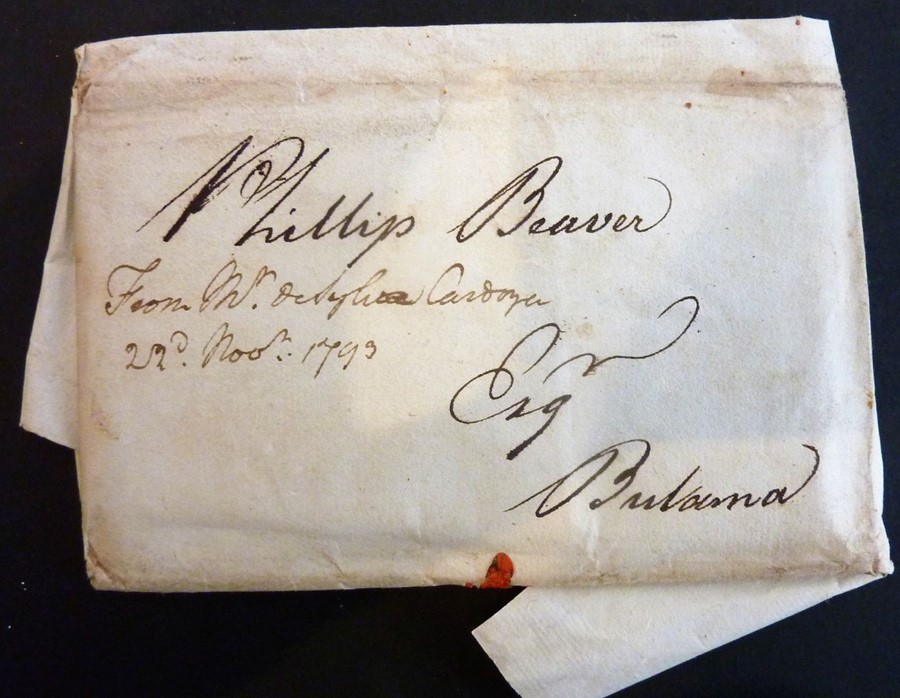 Phillip Beaver
From Mr. de Sylva Cardoza
22d. Novr. 1793
Esqr
Bulama